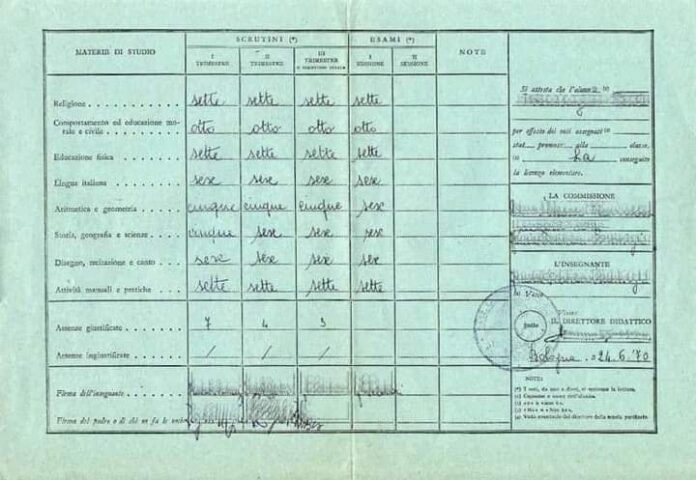 MATERIE DI STUDIO
SCRUTINI (*)
ESAMI (*)
NOTE
I TRIMESTRE
II TRIMESTRE
III TRIMESTRE
I SESSIONE
II SESSIONE
Religione sette sette sette sette
Comportamento ed educazione morale e civile otto otto otto otto
Educazione fisica sette sette sette sette
Lingua italiana sei sei sei sei
Aritmetica e geometria cinque cinque cinque sei
Storia, geografia e scienze cinque sei sei sei
Disegno, recitazione e canto sei sei sei sei
Attività manuali e pratiche sette sette sette sette
Assenze giustificate 7 4 3
Assenze ingiustificate / / /
Firma dell'insegnante
Firma del padre o di chi ne fa le veci
Si attesta che l'alunn
per effetto dei voti assegnati
stat promoss alla classe.
ha conseguito
la licenza elementare.
LA COMMISSIONE
L'INSEGNANTE
Visto
IL DIRETTORE DIDATTICO
Bologna 24.6.70
NOTE:
(*) I voti, da uno a dieci, si scrivono in lettere.